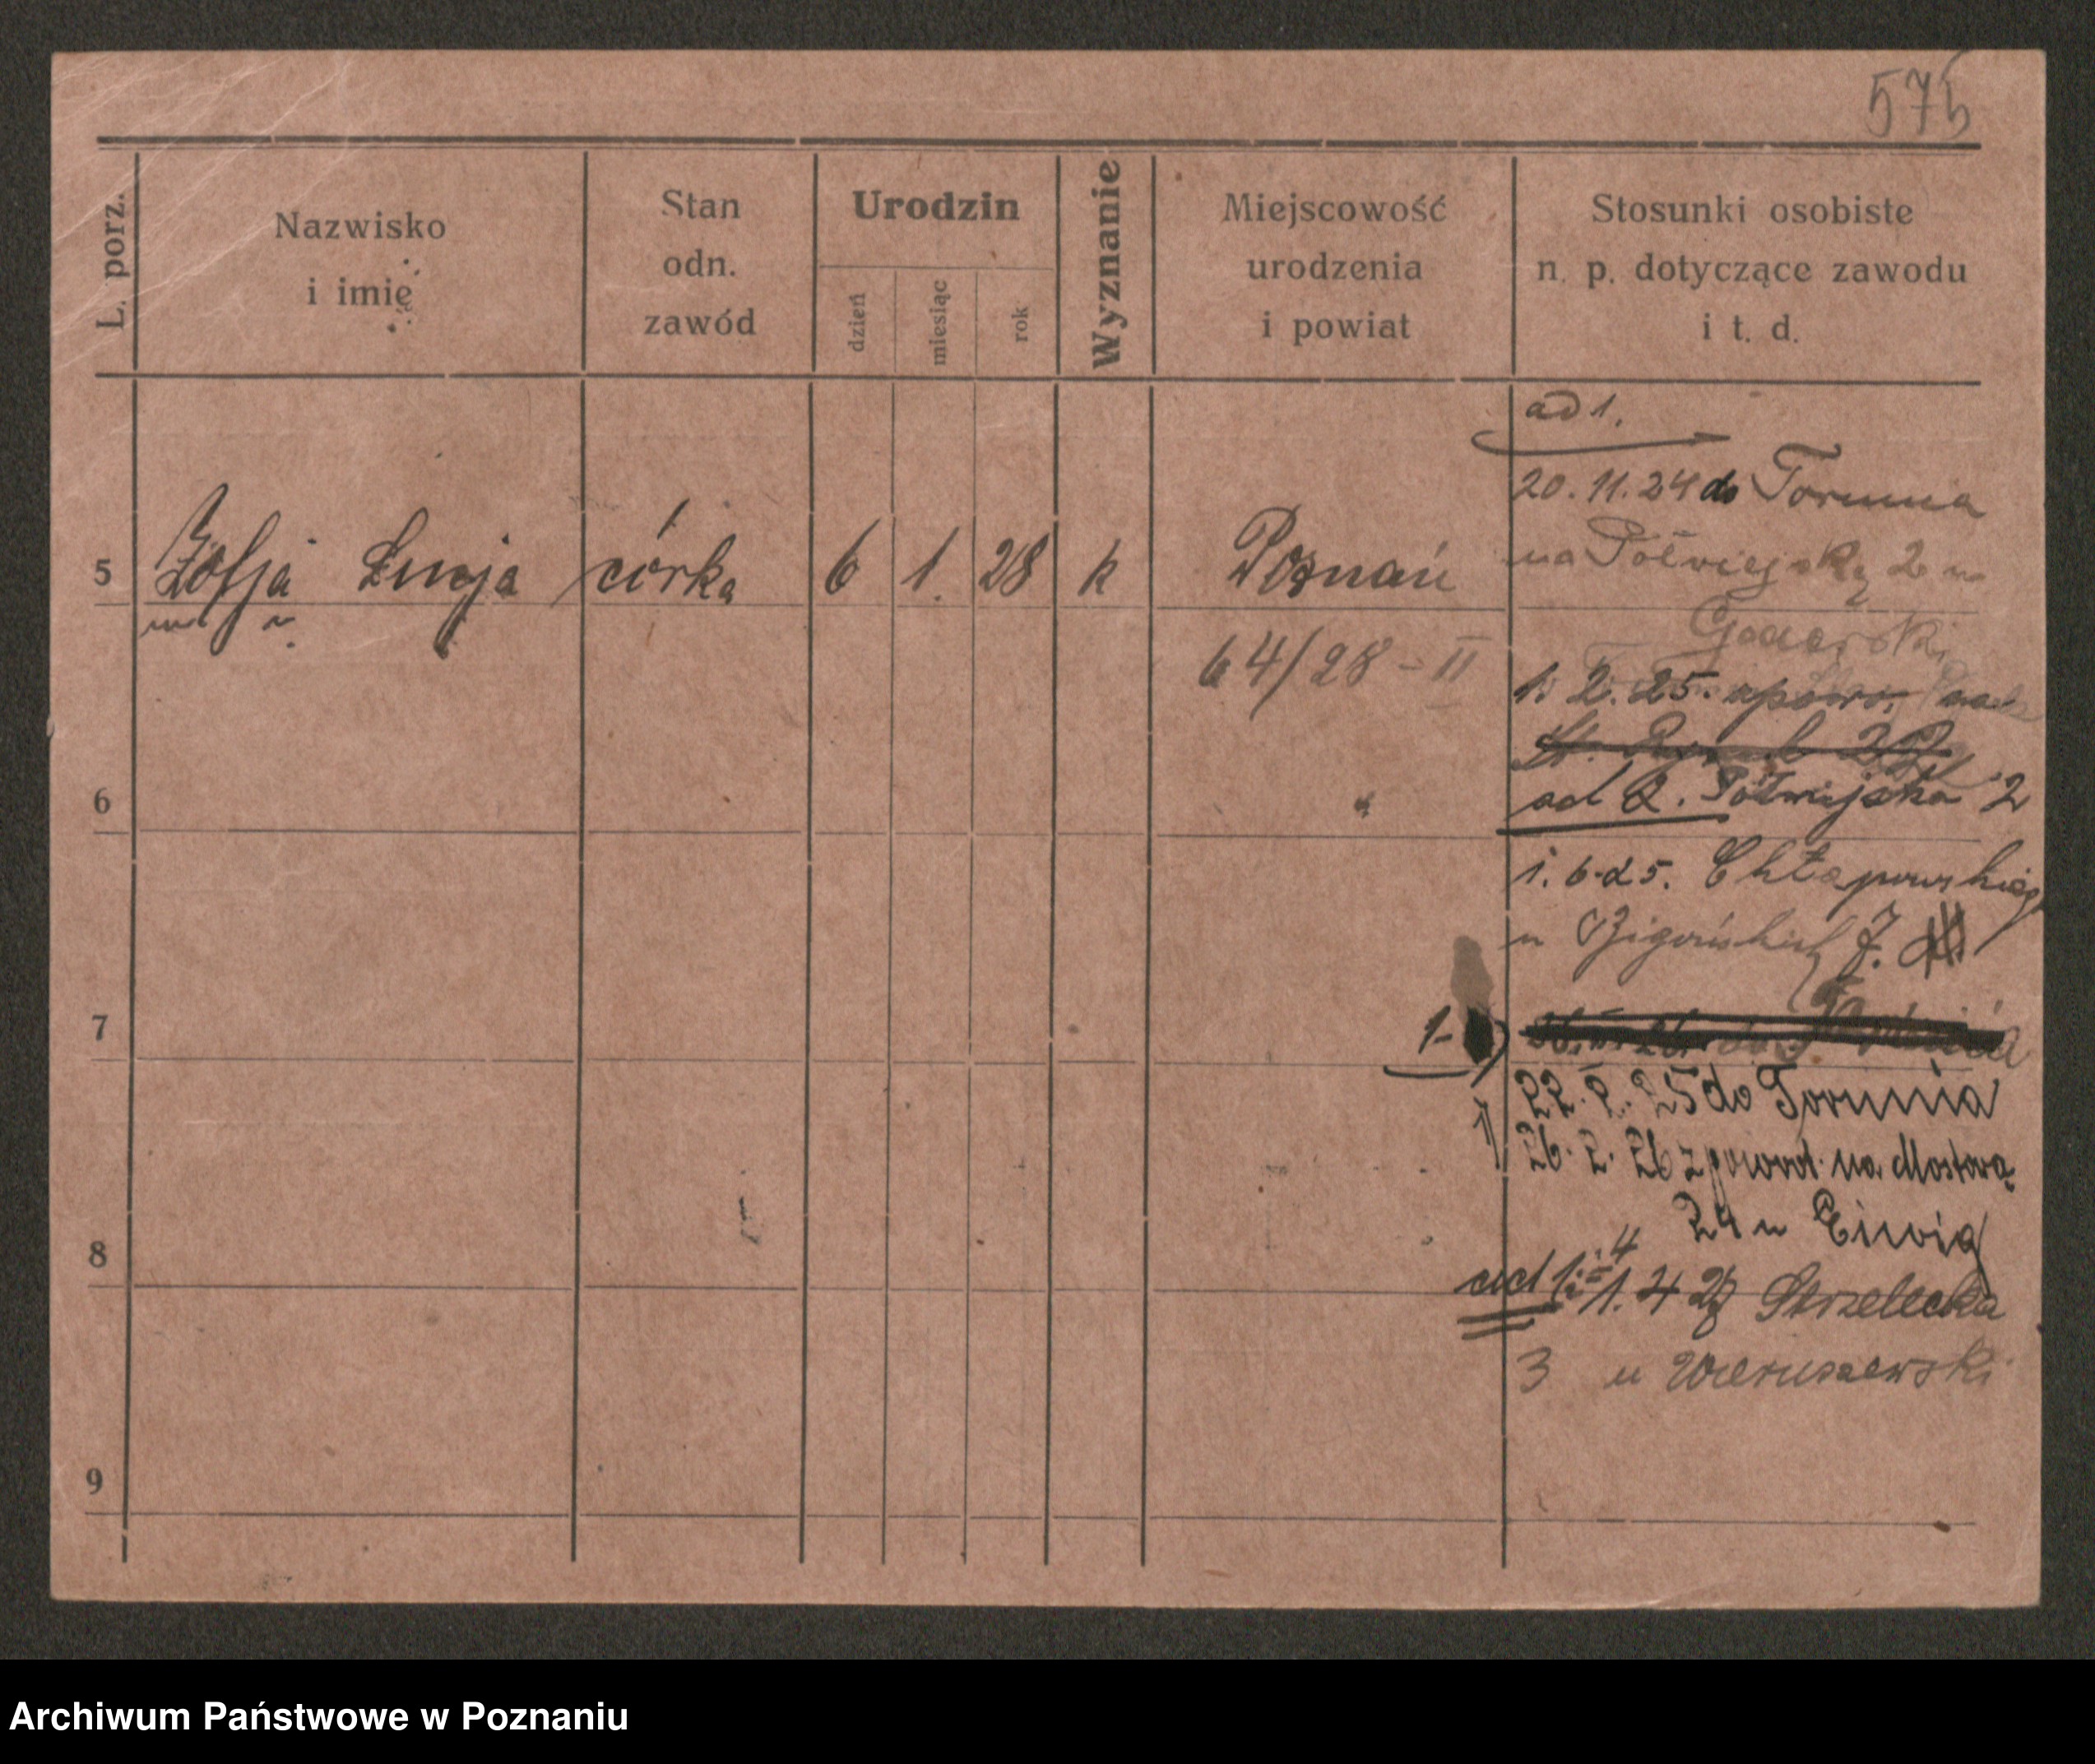 575
L. porz.
Nazwisko
i imię
Stan
odn.
zawód
Urodzin
dzień
miesiąc
rok
Wyznanie
Miejscowość
urodzenia
i powiat
Stosunki osobiste
n. p. dotyczące zawodu
i t. d.
ad 1.
20. 11. 24 do Torunia
na Półwiejską 2 u
5 Zofja Łucja córka 6 1. 28 k Poznań
64/28 - II
1. 2. 25.
6
ad 2. Półwiejska 2
1. 6. 25. Chłapowskiego
u
7
1-
22. 2. 25 do Torunia
26. 2. 26 z powrot. na Mostową
24 u
8
ad 1 i 4
1. 4 Strzelecka
3 u Wieruszewski
9
Archiwum Państwowe w Poznaniu